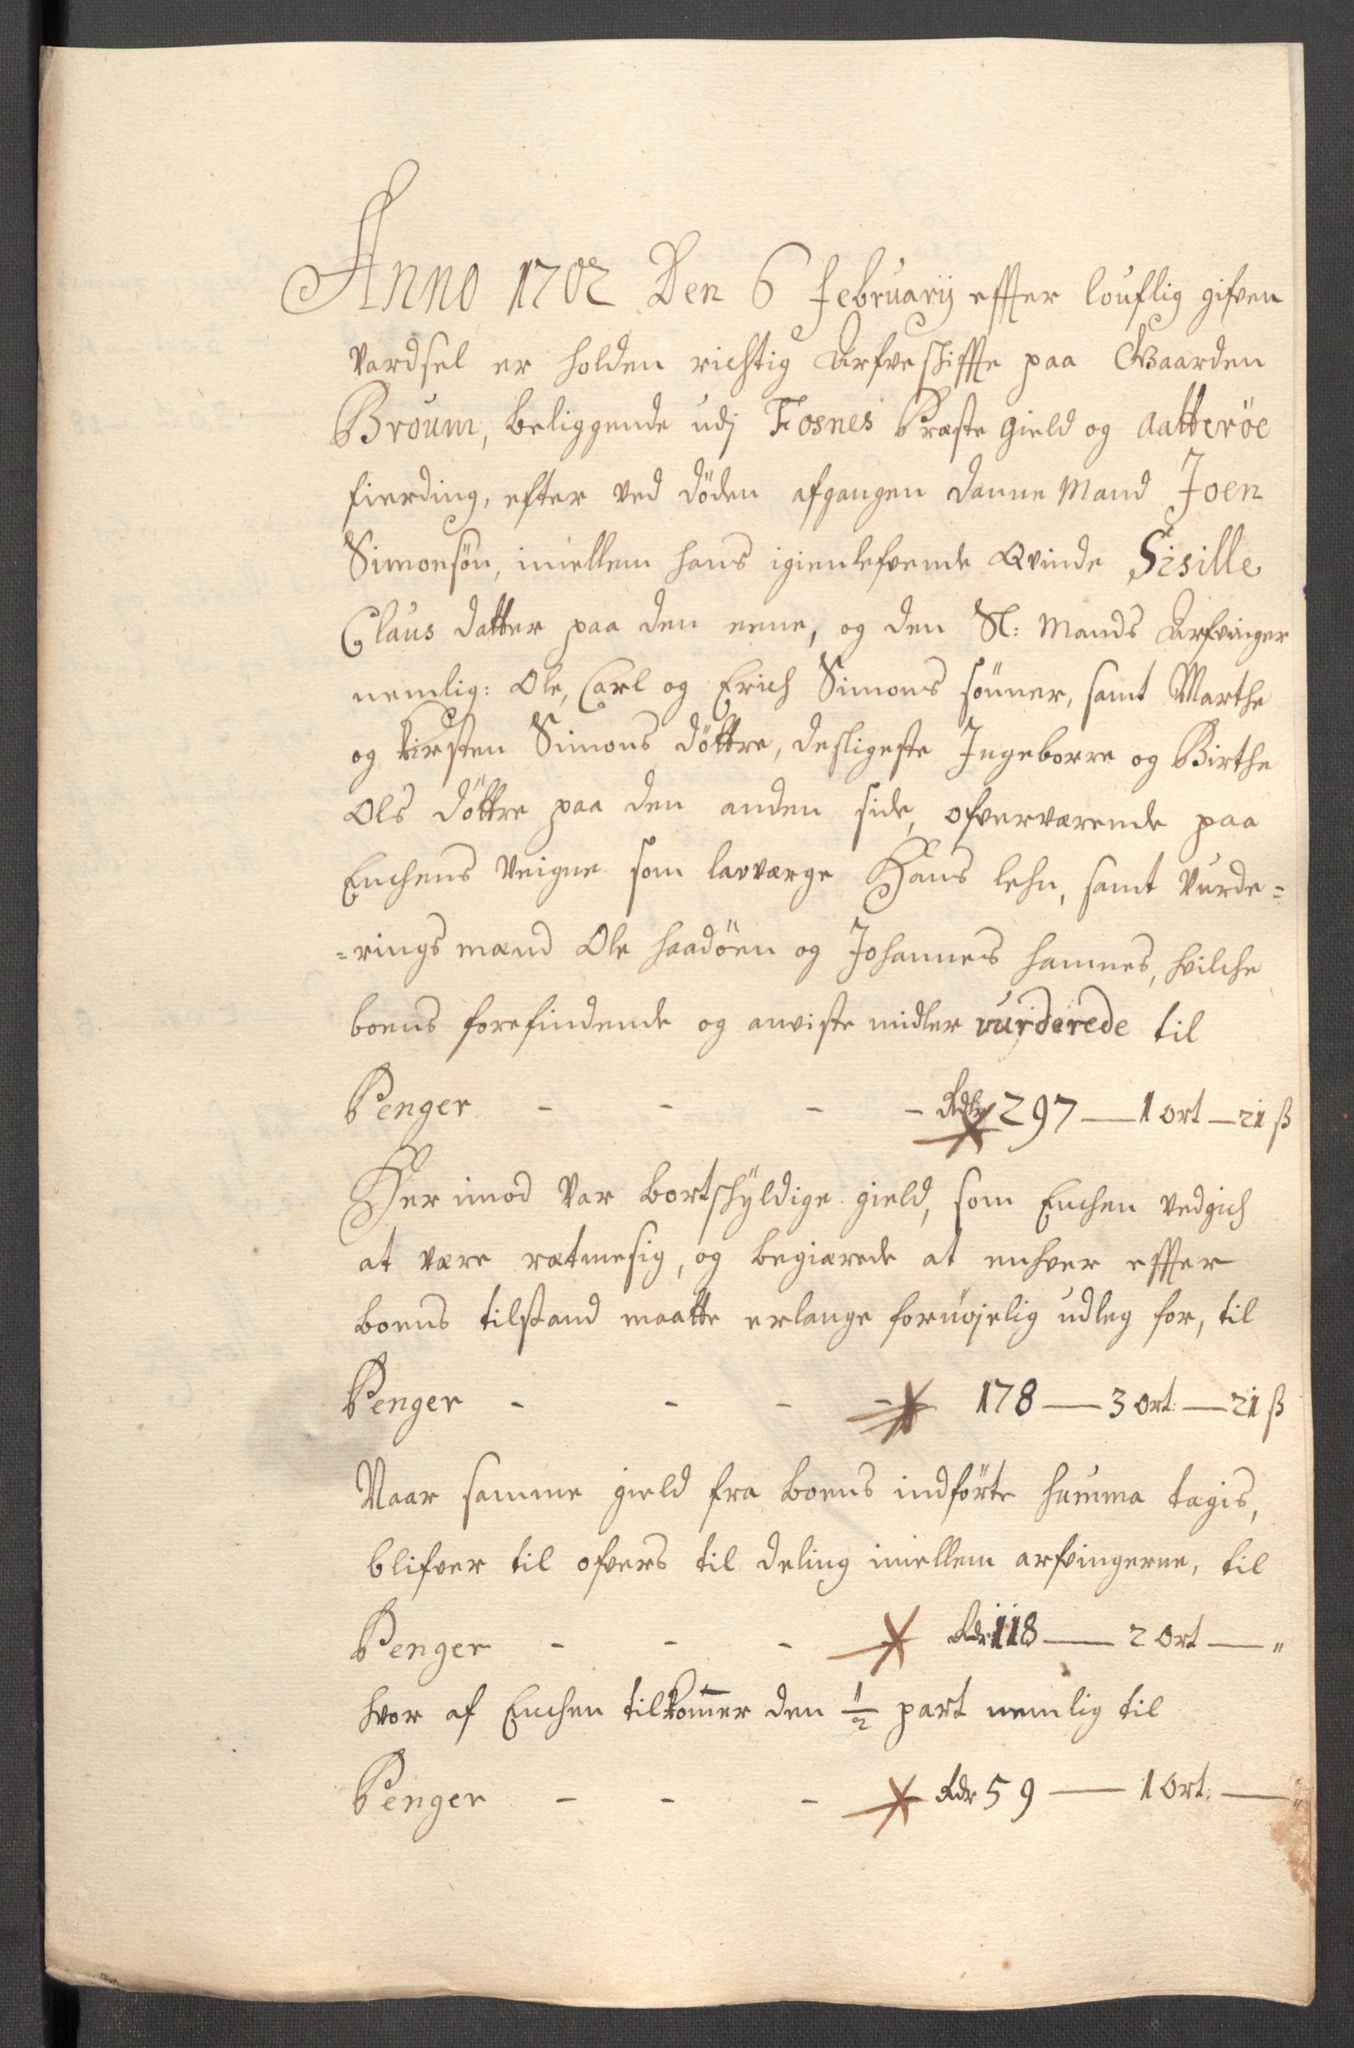 Anno 1702 Den 6 Februarij effter louflig gifven
vardsel er holden richtig Arfveschiffte paa Gaarden
Broum, beliggende udj Fosnes Præste gield og Aatterøe
fierding, efter ved døden afgangen danne Mand Joen
Simonsøn, imellem hans igienlefvende Qvinde Sisille
Claus datter paa den eene, og den Sl: Mands Arfvinger
nemlig: Ole, Carl og Erich Simons sønner, samt Marthe
og Kirsten Simons døttre, desligeste Ingeborre og Birthe
Ols døttre paa den anden side, ofverværende paa
Enchens Veigne som lavværge Hans lehn, samt Vurde=
=rings mænd Ole haadøen og Johannes hamnes, hvilche
boens forefindende og anviste midler vurderede til
Penger - - - - Rdlr 297 — 1 ort — 21 ß
Her imod var bortschyldige gield, som Enchen vedgich
at være rætmesig, og begiærede at enhver effter
boens tilstand maatte erlange fornøjelig udleg for, til
Penger - - - - 178 — 3 ort: — 21 ß
Naar samme gield fra boens indførte summa tagis,
blifver til ofvers til deling imellem arfvingerne, til
Penger - - - Rdr 118 — 2 ort — "
hvor af Enchen tilkommer den 1/2 part nemlig til
Penger - - - Rdr 59 — 1 ort: — "